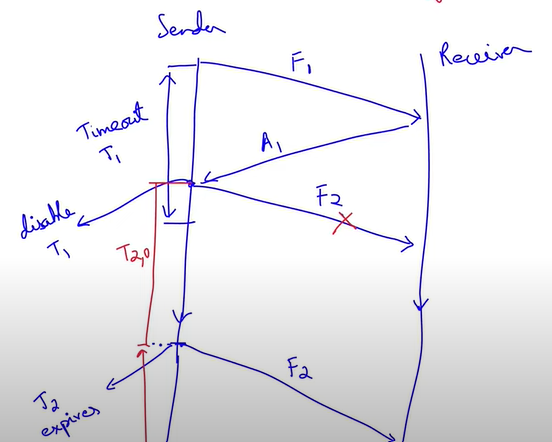 Sender
Receiver
F₁
Timeout
T₁
A₁
F2
disable
T₁
T2,0
F₂
T₂
expires